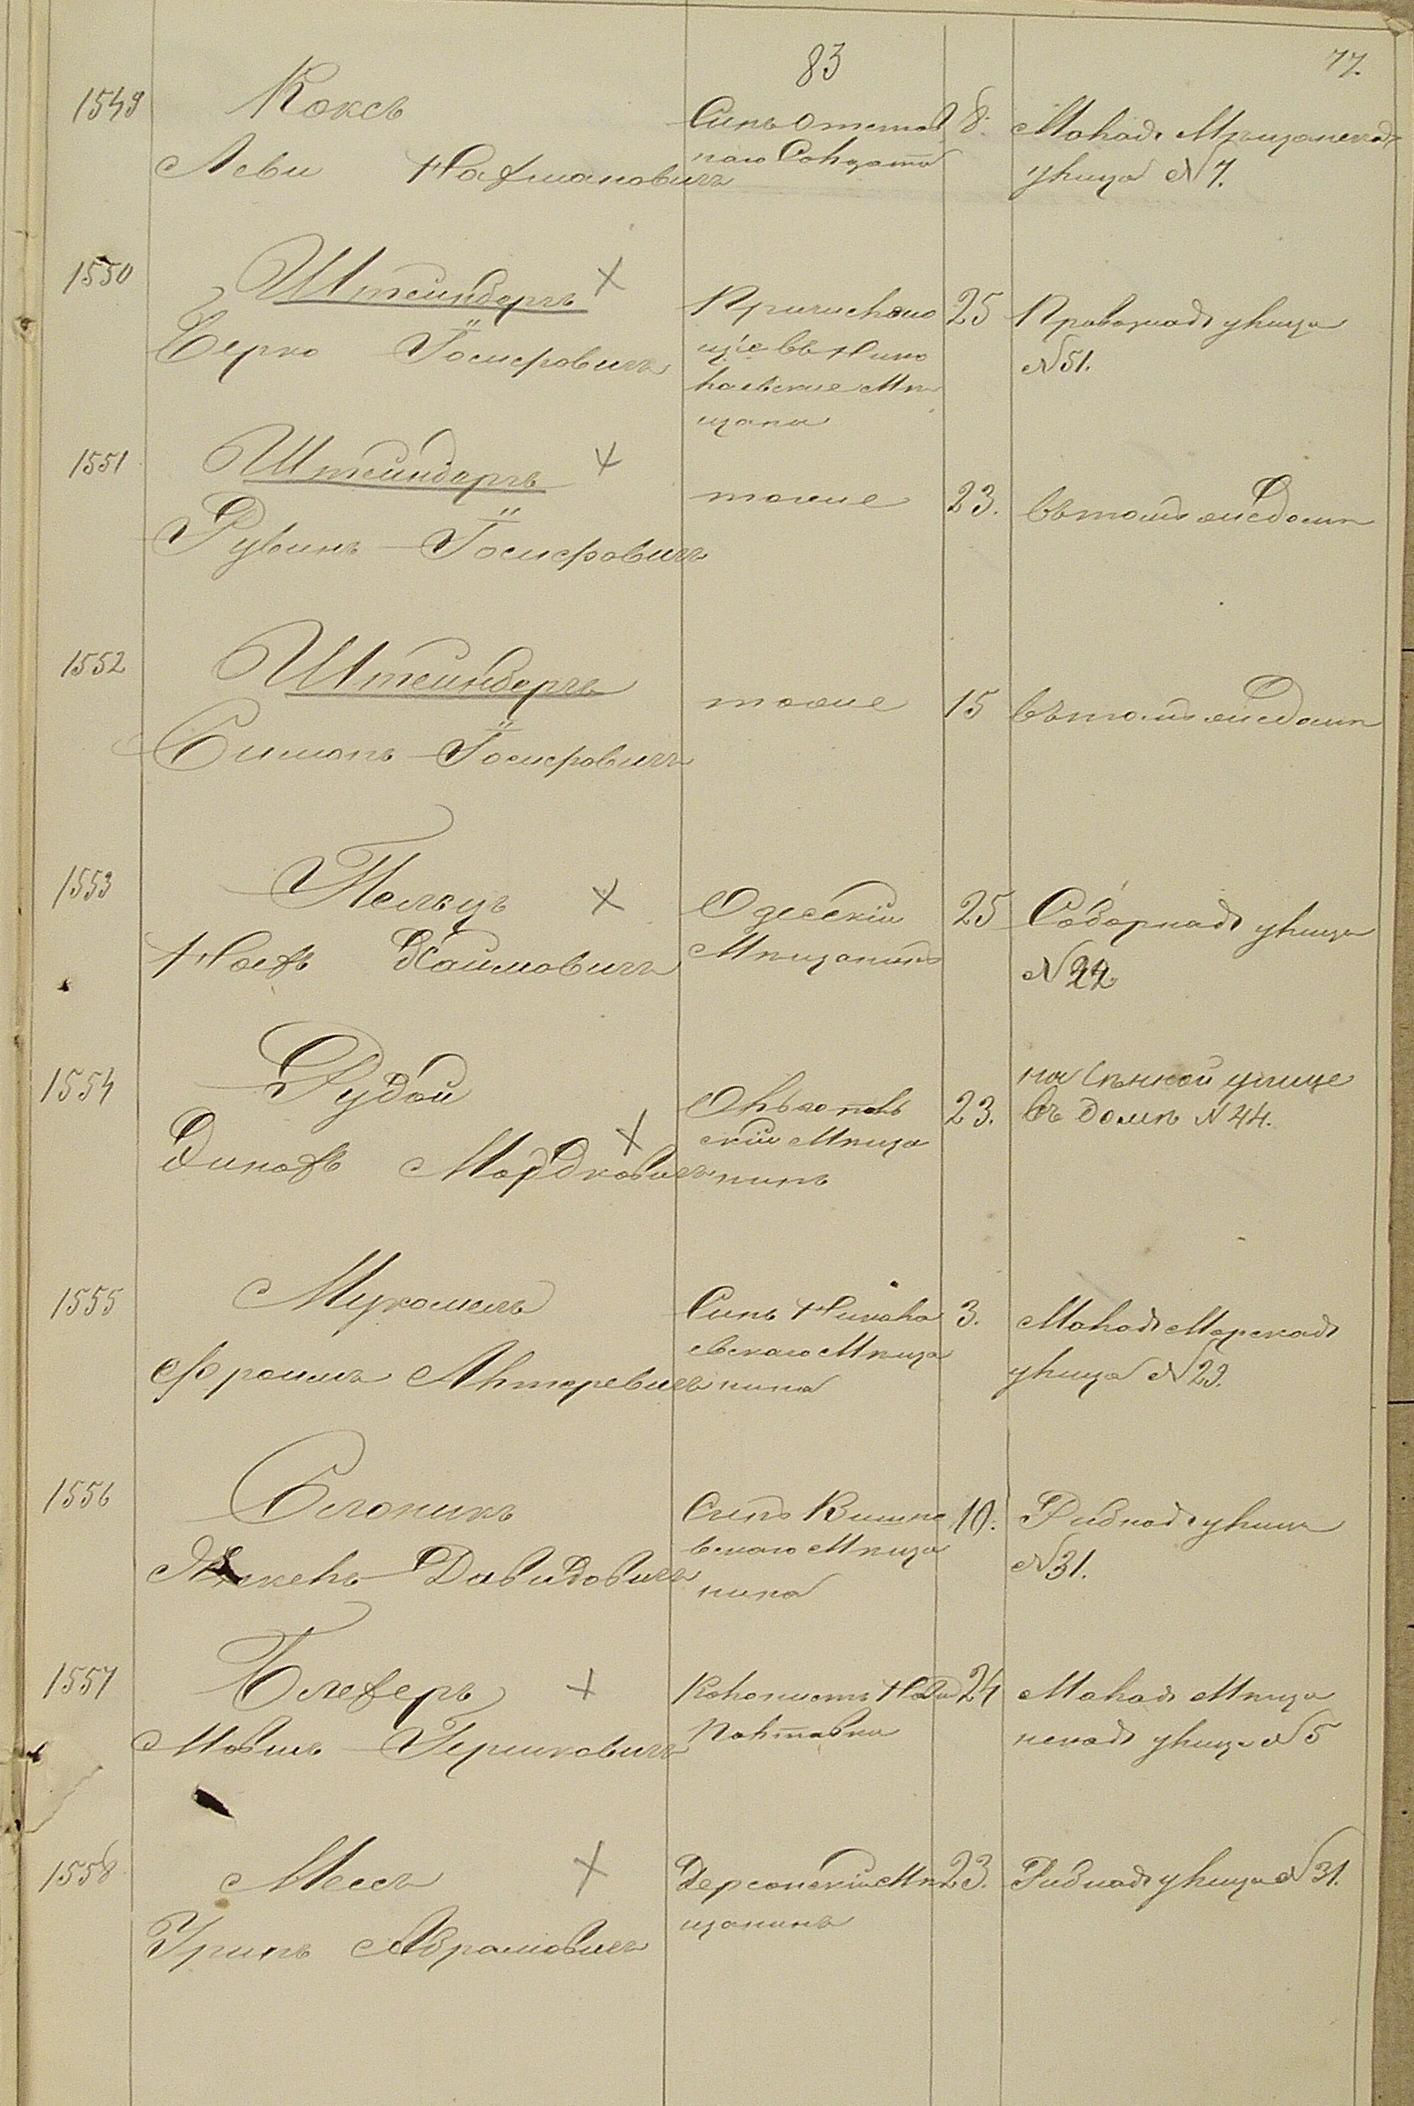 83
77.
1549 Коксъ
Леви Нафтановичъ
Сынъ Отстав
наго Солдата
8.
Малая Мѣщанская
улица № 7.
1550 Штейнбергъ ×
Берко Іосифовичъ
Причисляю
щіе въ Нико
лаевские Мѣ
щани
25
Привозная улица
№ 51.
1551 Штейнбергъ ×
Рувинъ Іосифовичъ
тоже
23.
въ томъ же домѣ
1552 Штейнбергъ
Симонъ Іосифовичъ
тоже
15
въ томъ же домѣ
1553 Пельцъ ×
Іосифъ Хаимовичъ
Одесскій
Мѣщанинъ
25
Соборная улица
№ 22
1554 Рудой
× Мордковичъ
Ольгополь
скій Мѣща
нинъ
23.
на Сѣнной улице
въ домѣ № 44.
1555 Мукомель
Фроимъ Алтеревичъ
Сынъ Никола
евскаго Мѣща
нина
3.
Малая Морская
улица № 29.
1556 Слоникъ
Янкель Давидовичъ
Сынъ
вскаго Мѣща
нина
10.
Рибная улица
№ 31.
1557 Блеферъ ×
Мовшъ Гершковичъ
Колонистъ
Полтавки
24
Малая Мѣща
нская улица № 5
1558 Месъ ×
Уринъ Абрамовичъ
Херсонскій Мѣ
щанинъ
23.
Рибная улица № 31.